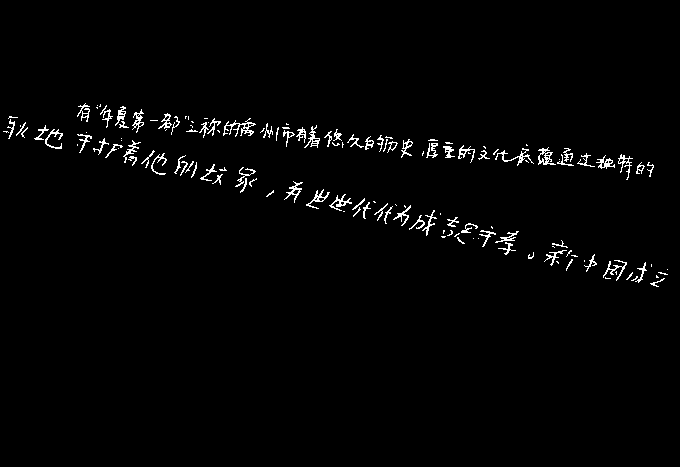 有“华夏第一都”之称的禹州市有着悠久的历史,厚重的文化底蕴通过独特的
地守护着他的坟冢,并世世代代为成吉思守孝。新中国成立